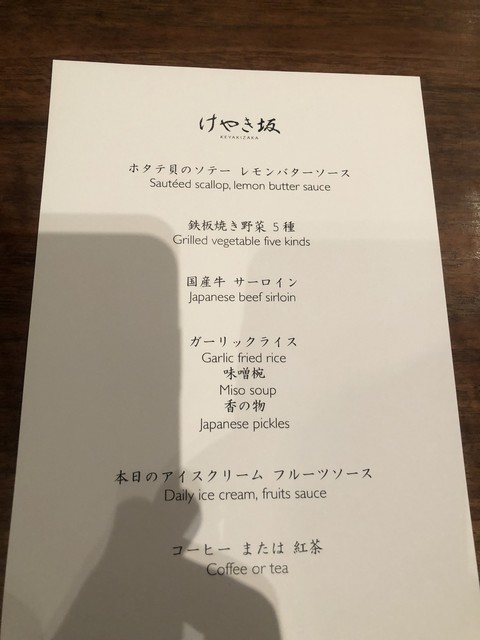 けやき坂
KEYAKIZAKA
ホタテ貝のソテー レモンバターソース
Sautéed scallop, lemon butter sauce
鉄板焼き野菜 5 種
Grilled vegetable five kinds
国産牛 サーロイン
Japanese beef sirloin
ガーリックライス
Garlic fried rice
味噌椀
Miso soup
香の物
Japanese pickles
本日のアイスクリーム フルーツソース
Daily ice cream, fruits sauce
コーヒー または 紅茶
Coffee or tea